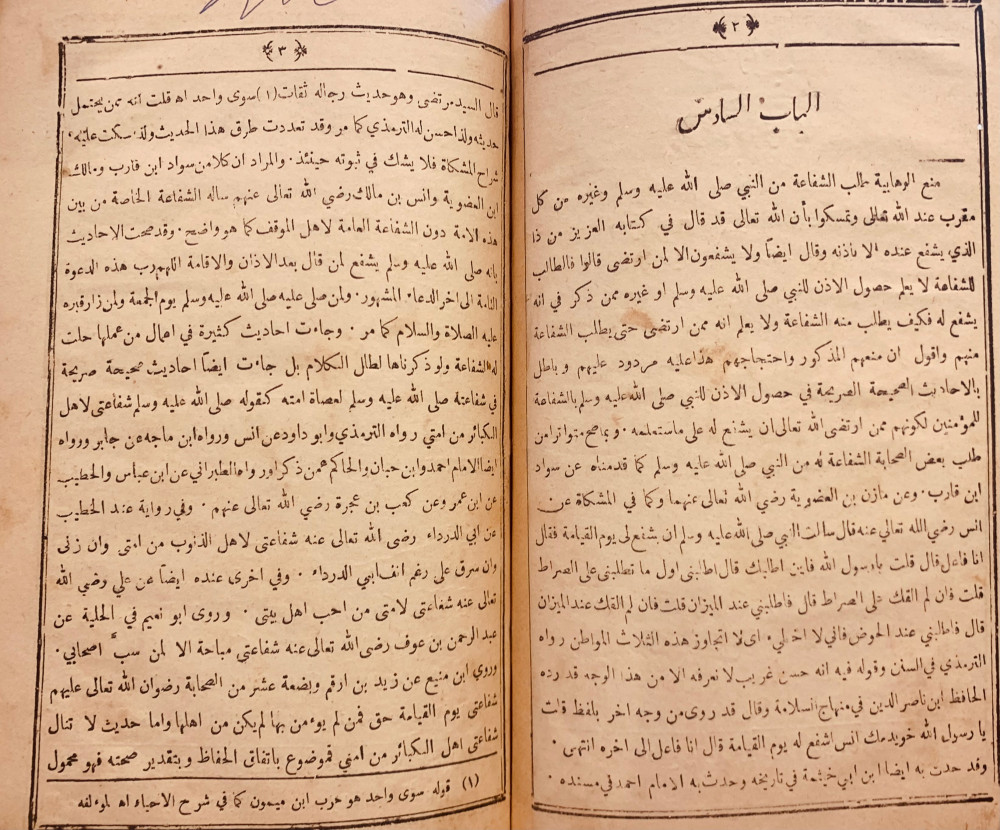 ﴿ ٢ ﴾
الباب السادس
منع الوهابية طلب الشفاعة من النبي صلى الله عليه وسلم وغيره من كل
مقرب عند الله تعالى وتمسكوا بأن الله تعالى قد قال في كتابه العزيز من ذا
الذي يشفع عنده الا باذنه وقال ايضاً ولا يشفعون الا لمن ارتضى قالوا فالطالب
للشفاعة لا يعلم حصول الاذن للنبي صلى الله عليه وسلم او غيره ممن ذكر في انه
يشفع له فكيف يطلب منه الشفاعة ولا يعلم انه ممن ارتضى حتى يطلب الشفاعة
منهم واقول ان منعهم المذكور واحتجاجهم هذا عليه مردود عليهم وباطل
بالاحاديث الصحيحة الصريحة في حصول الاذن للنبي صلى الله عليه وسلم بالشفاعة
للمؤمنين لكونهم ممن ارتضى الله تعالى ان يشفع له على ماستعلمه . وبما صح متواترا من
طلب بعض الصحابة الشفاعة له من النبي صلى الله عليه وسلم كما قدمناه عن سواد
ابن قارب . وعن مازن بن العضوية رضي الله تعالى عنهما وكما في المشكاة عن
انس رضي الله تعالى عنه قال سالت النبي صلى الله عليه وسلم ان يشفع لي يوم القيامة فقال
انا فاعل قال قلت يارسول الله فاين اطلبك قال اطلبني اول ما تطلبني على الصراط
قلت فان لم القك على الصراط قال فاطلبني عند الميزان قلت فان لم القك عند الميزان
قال فاطلبني عند الحوض فاني لا اخطي . اى لا اتجاوز هذه الثلاث المواطن رواه
الترمذي في السنن وقوله فيه انه حسن غريب لا نعرفه الا من هذا الوجه قد رده
الحافظ ابن ناصر الدين في منهاج السلامة وقال قد روى من وجه اخر بلفظ قلت
يا رسول الله خويدمك انس اشفع له يوم القيامة قال انا فاعل الى اخره انتهى .
وقد حدث به ايضا ابن ابي خيثمة في تاريخه وحدث به الامام احمد في مسنده .
﴿ ٣ ﴾
قال السيد مرتضى وهو حديث رجاله ثقات (١) سوى واحد اه قلت انه ممن يحتمل
حديثه ولذا حسن له الترمذي كما مر وقد تعددت طرق هذا الحديث ولذا سكت عليه
شراح المشكاة فلا يشك في ثبوته حينئذ . والمراد ان كلا من سواد ابن قارب ومالك
ابن العضوية وانس بن مالك رضي الله تعالى عنهم ساله الشفاعة الخاصة من بين
هذه الامة دون الشفاعة العامة لاهل الموقف كما هو واضح . وقد صحت الاحاديث
بانه صلى الله عليه وسلم يشفع لمن قال بعد الاذان والاقامة اللهم رب هذه الدعوة
التامة الى اخر الدعاء المشهور . ولمن صلى عليه صلى الله عليه وسلم يوم الجمعة ولمن زار قبره
عليه الصلاة والسلام كما مر . وجاءت احاديث كثيرة في اعمال من عملها حلت
له الشفاعة ولو ذكرناها لطال الكلام بل جاءت ايضاً احاديث صحيحة صريحة
في شفاعته صلى الله عليه وسلم لعصاة امته كقوله صلى الله عليه وسلم شفاعتى لاهل
الكبائر من امتي رواه الترمذي وابو داود عن انس ورواه ابن ماجه عن جابر ورواه
ايضا الامام احمد وابن حبان والحاكم عمن ذكر اورواه الطبراني عن ابن عباس والخطيب
عن ابن عمر وعن كعب بن عجرة رضي الله تعالى عنهم . وفي رواية عند الخطيب
عن ابي الدرداء رضي الله تعالى عنه شفاعتى لاهل الذنوب من امتى وان زنى
وان سرق على رغم انف ابي الدرداء . وفي اخرى عنده ايضاً عن علي رضي الله
تعالى عنه شفاعتي لامتى من احب اهل بيتي . وروى ابو نعيم في الحلية عن
عبد الرحمن بن عوف رضى الله تعالى عنه شفاعتي مباحة الا لمن سبَّ اصحابي .
وروي ابن منيع عن زيد بن ارقم وبضعة عشر من الصحابة رضوان الله تعالى عليهم
شفاعتى يوم القيامة حق فمن لم يوءمن بها لم يكن من اهلها واما حديث لا تنال
شفاعتى اهل الكبائر من امتي فموضوع باتفاق الحفاظ وبتقدير صحته فهو محمول
(١) قوله سوى واحد هو حرب ابن ميمون كما في شرح الاحياء اه لموءلفه